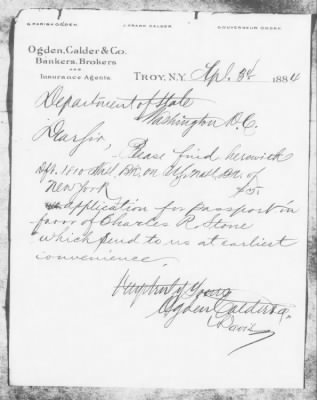 G. PARISH OGDEN. J. FRANK CALDER. GOUVERNEUR OGDEN.
Ogden, Calder & Co.
Bankers, Brokers
AND
Insurance Agents.
TROY, N.Y. Apl. 3d 1884
Department of State
Washington D.C.
Dear Sir, Please find herewith
Dft. Natl. Bk. on Natl. Bk. of
New York $5
application for passport in
favor of Charles R. Stone
which send to us at earliest
convenience.
Yours
Ogden Calder & Co.
Davis